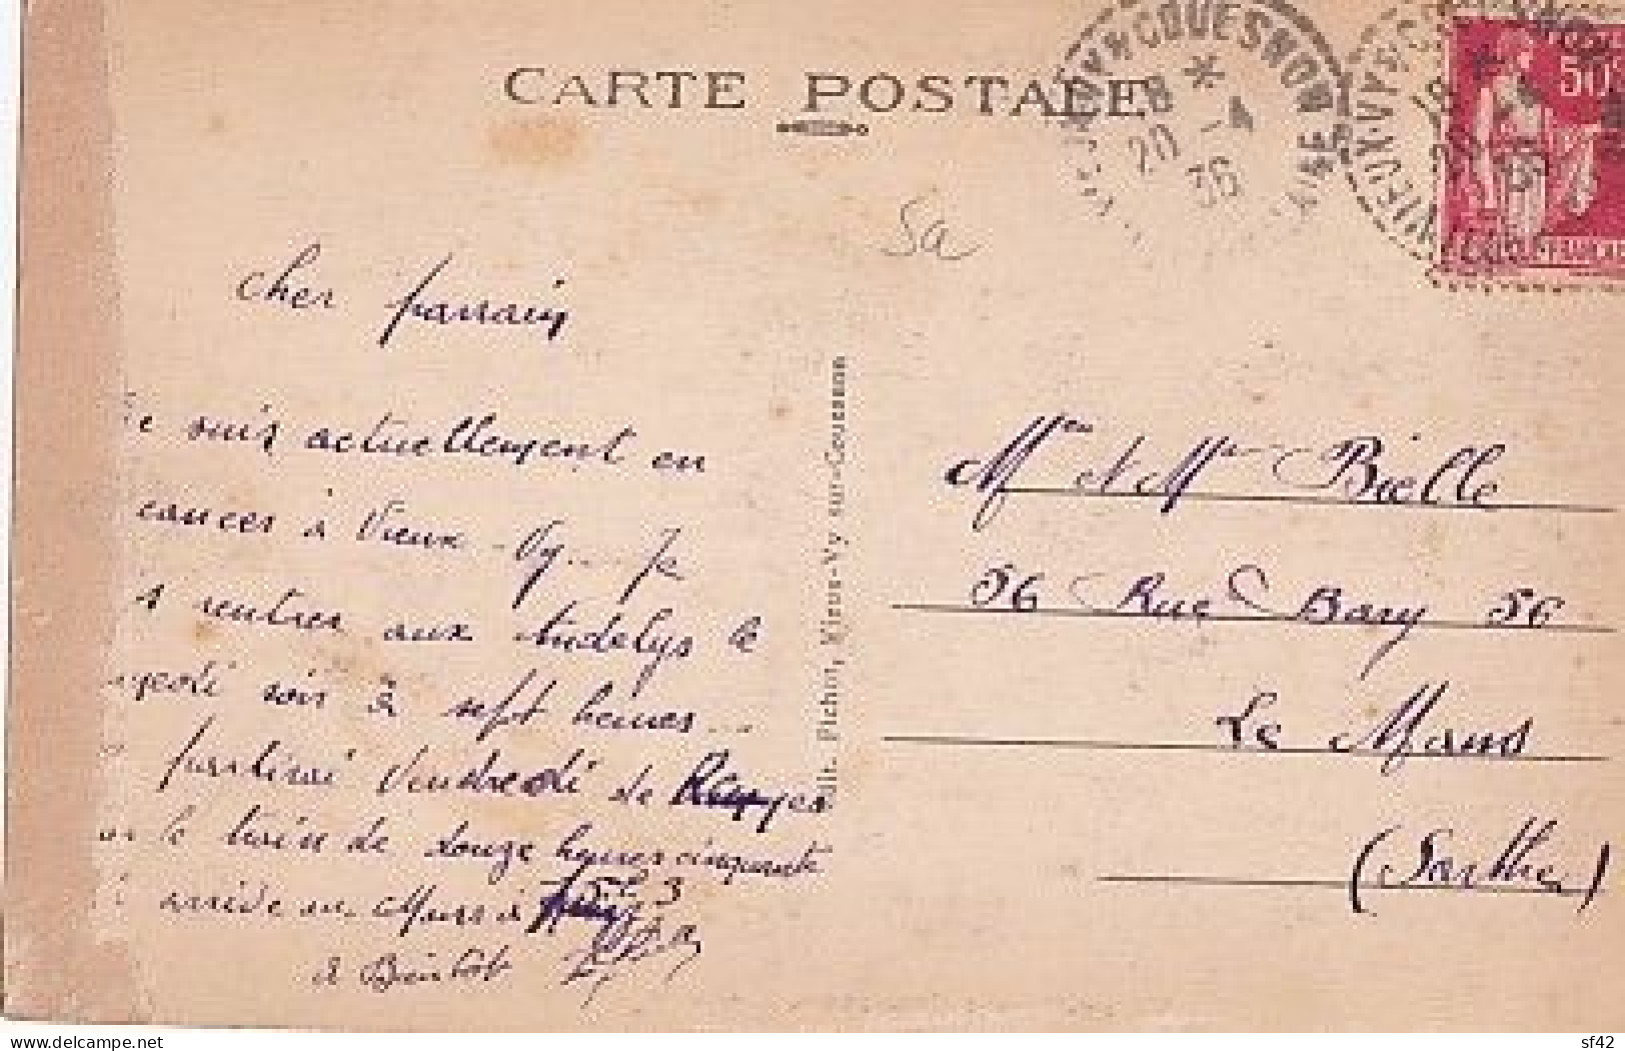 CARTE POSTALE
VIEUX-VY S COUESNON
18 *
20 -4
36
50c
5a
cher parrain
Je suis actuellement en
cances à Vieux-Vy... Je
s rentrer aux Andelys le
medi soir à sept heures...
partirai Vendredi de Rennes
le train de douze heures cinquante
arrive au Mans à 3
à Bientôt
Edit. Pichot, Vieux-Vy sur-Couesnon
Mr et Mme Bielle
56 Rue Bary 56
Le Mans
(Sarthe)
www.delcampe.net
sf42